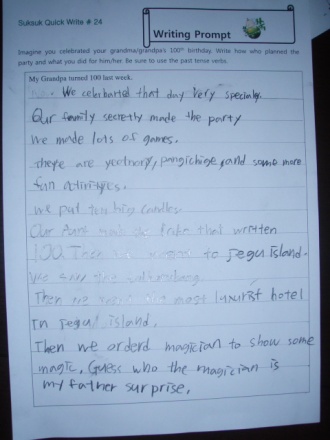 Suksuk Quick Write # 24
Writing Prompt
Imagine you celebrated your grandma/grandpa's 100th birthday. Write how who planned the
party and what you did for him/her. Be sure to use the past tense verbs.
My Grandpa turned 100 last week.
We celebarted that day very specialy.
Our family secretly made the party
we made lots of games.
there are yeotnory, pangichige, and some more
fun activityes.
we put ten big candles
Our Aunt that written
100. Then to Jegu island.
We saw
Then we most luxurist hotel
in Jegu island.
Then we orderd magician to show some
magic. Guess who the magician is
my father surprise.